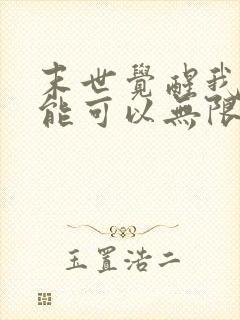 末世覺醒我
能可以無限
玉置浩二